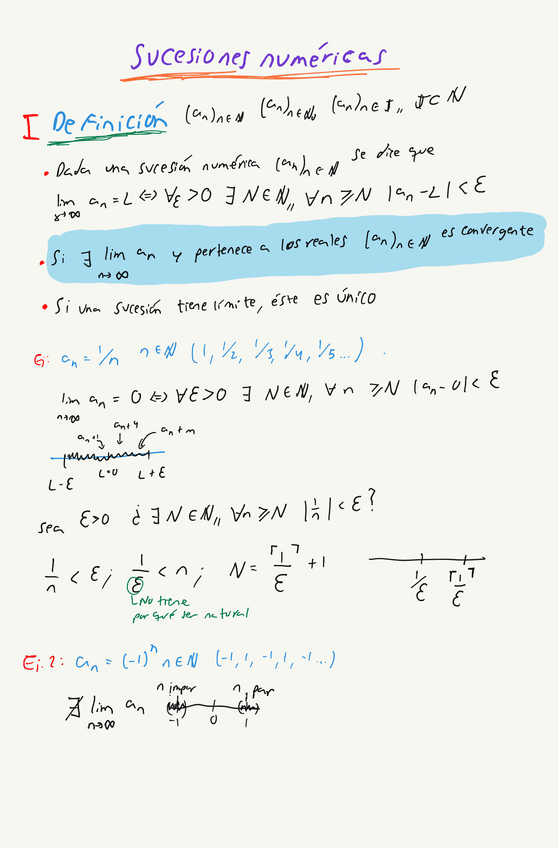 Sucesiones numéricas
I Definición (an)n∈ℕ (an)n∈ℕ, (an)n∈J,, J⊂ℕ
• Dada una sucesión numérica (an)n∈ℕ se dice que
lim an = L ⇔ ∀ε > 0 ∃ N∈ℕ,, ∀n ≥ N |an - L| < ε
x→∞
• Si ∃ lim an y pertenece a los reales (an)n∈ℕ es convergente
n→∞
• Si una sucesión tiene límite, éste es único
Ej: an = 1/n n∈ℕ (1, 1/2, 1/3, 1/4, 1/5...)
lim an = 0 ⇔ ∀ε>0 ∃ N∈ℕ, ∀n ≥ N |an - 0| < ε
n→∞
an+4 an+m
L-ε L=0 L+ε
sea ε>0 ¿∃ N∈ℕ,, ∀n ≥ N |1/n| < ε?
1/n < ε; 1/ε < n; N = ⌈1⌉/ε + 1
1/ε ⌈1⌉/ε
No tiene
por qué ser natural
Ej. 2: an = (-1)^n n∈ℕ (-1, 1, -1, 1, -1...)
n impar n par
∄ lim an
n→∞
-1 0 1